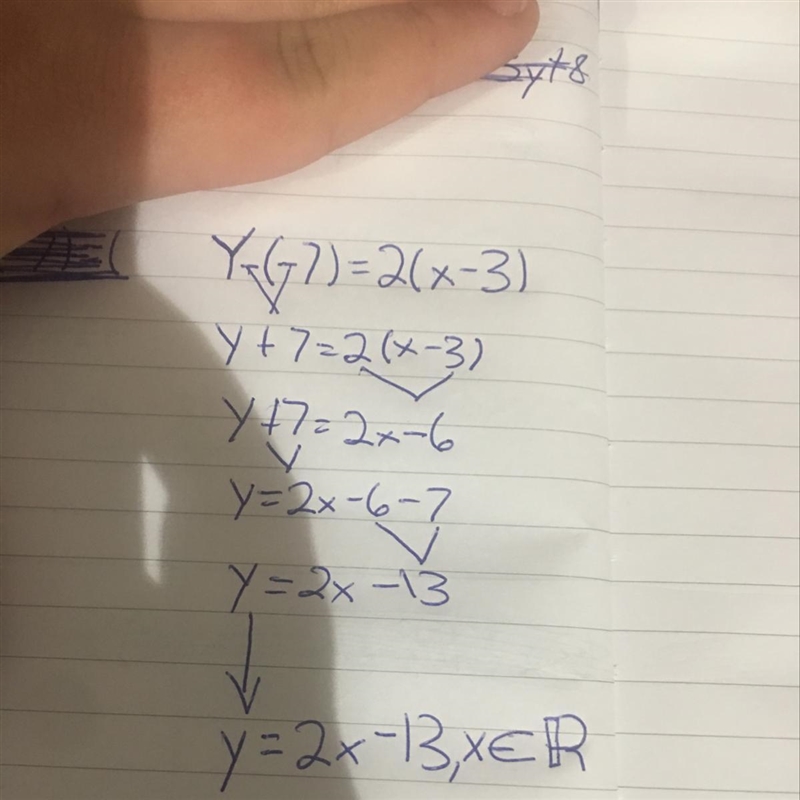 5y+8
Y-(-7)=2(x-3)
y+7=2(x-3)
y+7=2x-6
y=2x-6-7
y=2x-13
y=2x-13,x∈ℝ